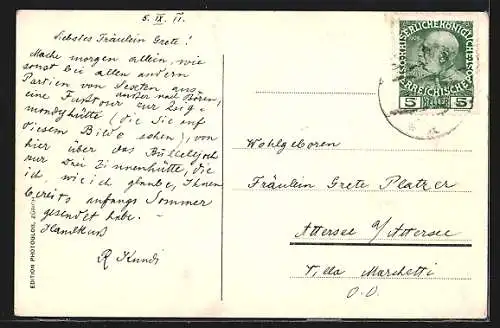 5. IX. 11.
Liebstes Fräulein Grete!
Mache morgen allein, wie
sonst bei allen andern
Partien von Sexten aus
außer nach Bözen,
eine Fußtour zur Zsig-
mondyhütte (die Sie auf
diesem Bilde sehen), von
hier über das Büllelejoch
zur Drei Zinnenhütte, die
ich wie ich glaube, Ihnen
bereits anfangs Sommer
gesendet habe.
Handkuß
R
EDITION PHOTOGLOB, ZÜRICH
KAISERLICHE KÖNIGLICHE
ÖSTERREICHISCHE
5 HELLER 5
Wohlgeboren
Fräulein Grete Platzer
Attersee a/Attersee
Villa Marchetti
O.Ö.